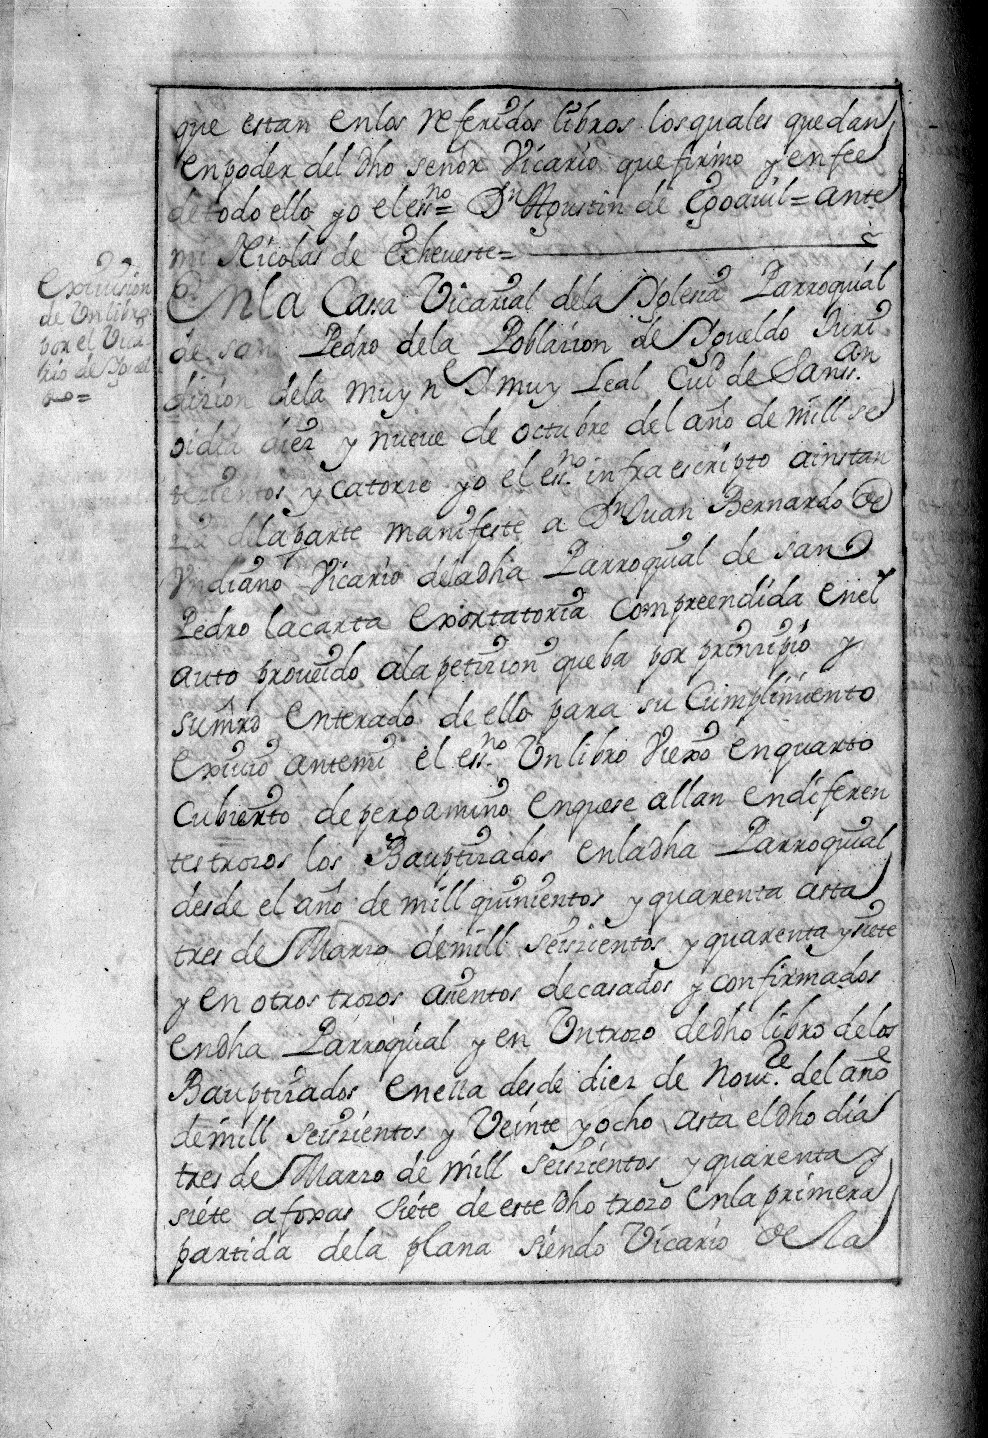 que estan enlos referidos libros los quales quedan
en poder del dho señor Vicario que firmo y enfee
de todo ello yo el essno = Dn Agustin de = ante
mi Nicolas de Echeueste =
Exiuision
de Vn libro
por el Vica
rio de Yguel
do =
En la Cassa Vicarial dela Yglesia Parroquial
de san Pedro dela Poblazion de Ygueldo Juris
dizion dela muy Ne y muy Leal Ciud de San Sann
a diez y nueue de octubre del año de mill se
tezientos y catorze yo el essno infraescripto ainstan
zia dela parte manifeste a Dn Juan Bernardo de
Yndiano Vicario deladha Parroquial de san
Pedro lacarta exortatoria compreendida enel
auto proueido ala petizion que ba por prinzipio y
sumrd enterado de ello para su Cumplimiento
exiuio antemi el essno Vn libro Viexo en quarto
Cubierto de pergamino enquese allan en diferen
tes trozos los Bauptizados enladha Parroquial
desde el año de mill quinientos y quarenta asta
tres de Marzo demill seiszientos y quarenta y siete
y en otros trozos asientos decasados y confirmados
endha Parroquial y en Vn trozo dedho libro de los
Bauptizados enella desde diez de Noure del año
demill seiszientos y Veinte y ocho asta eldho dia
tres de Marzo de mill seiszientos y quarenta y
siete afoxas siete de este dho trozo enla primera
partida dela plana siendo Vicario de la